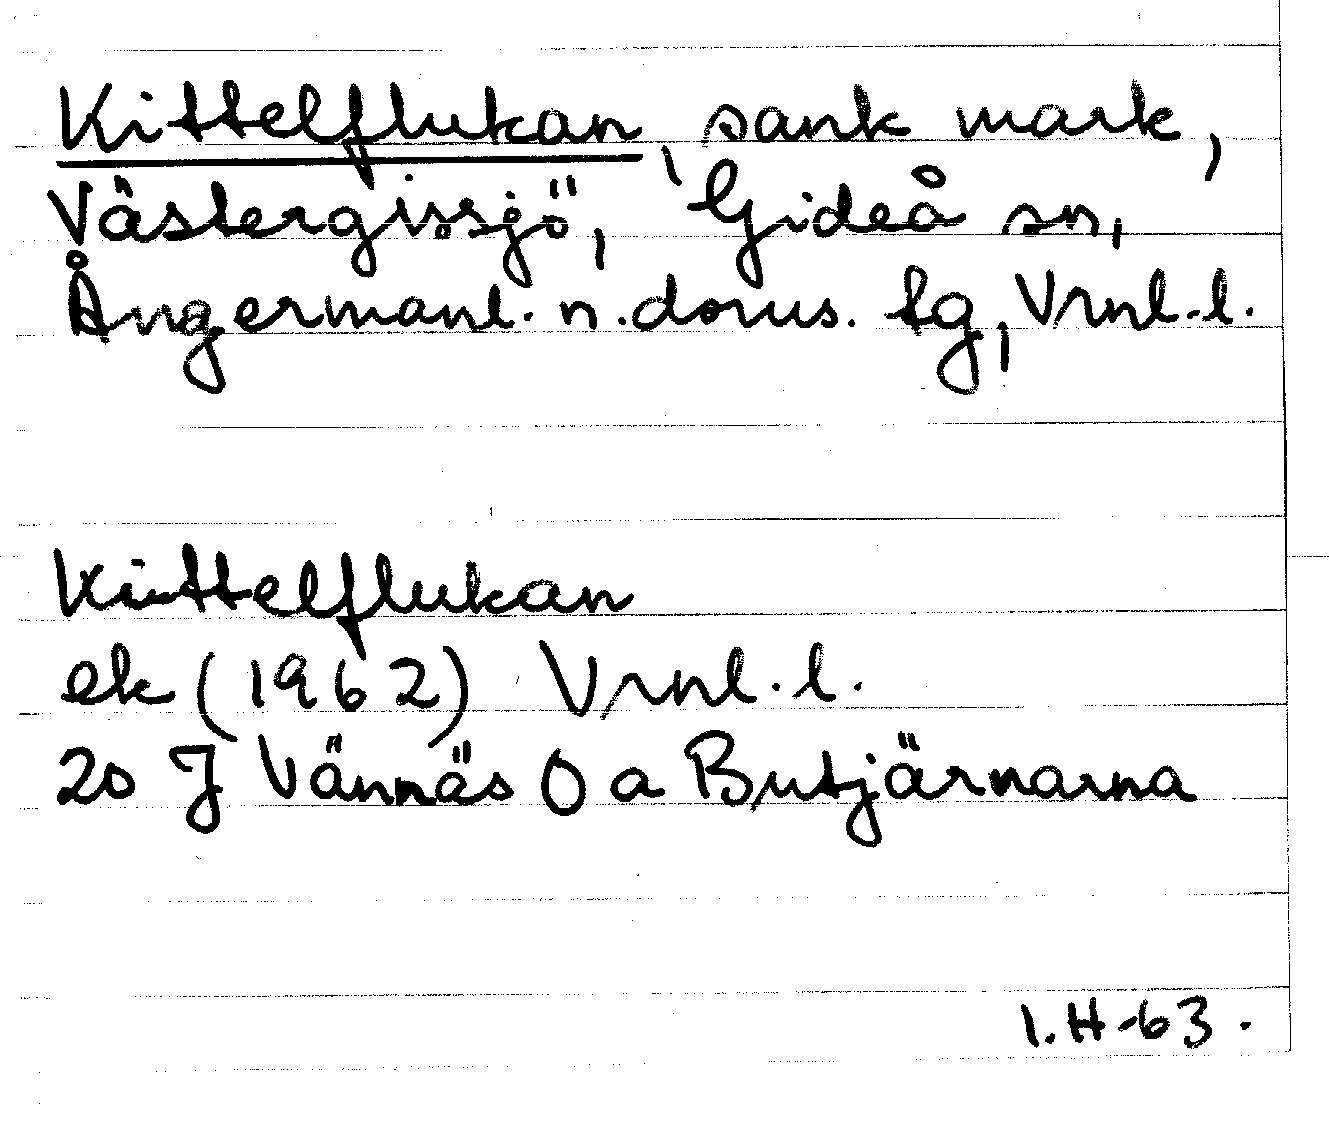 Kittelflukan, sank mark,
Västergissjö, Gideå sn,
Ångermanl. n. doms. tg, Vrnl. l.
Kittelflukan
ek (1962) Vrnl. l.
20 J Vännäs O a Butjärnarna
I. H-63.